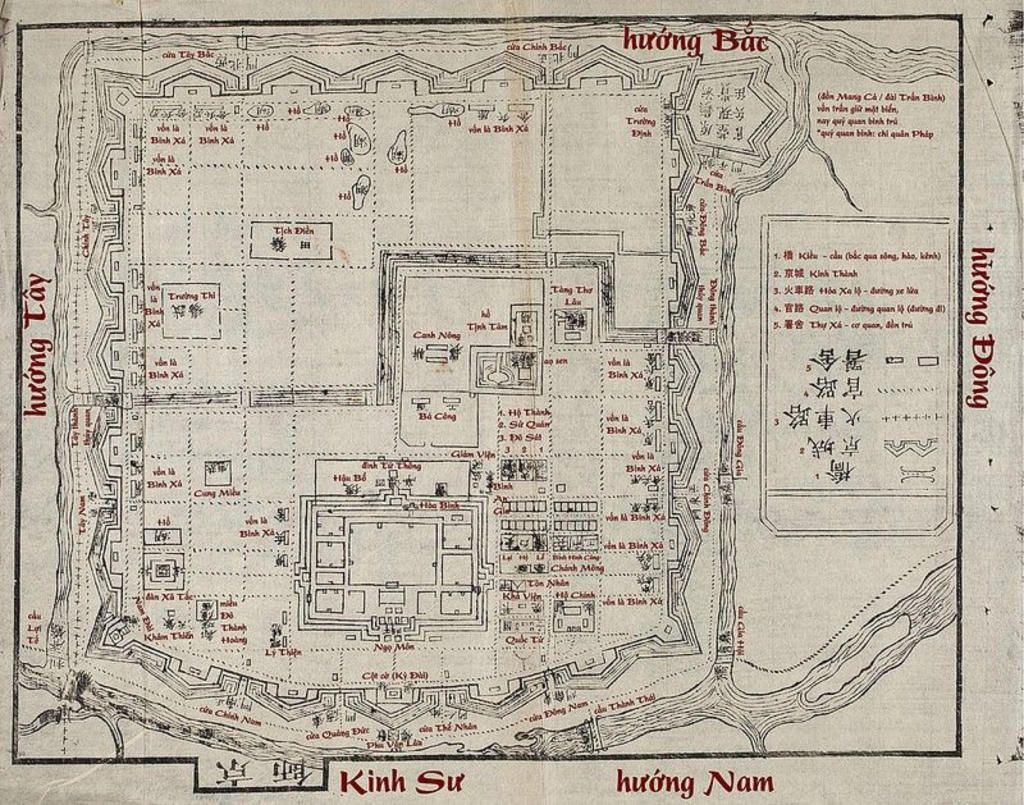 hướng Bắc
cửa Tây Bắc
cửa Chính Bắc
(đồn Mang Cá / đài Trấn Bình)
vốn trấn giữ mặt biển,
nay quý quan binh trú
*quý quan binh: chỉ quân Pháp
cửa
Trường
Định
cửa
Trấn Bình
cửa Đông Bắc
vốn là
Bình Xá
vốn là
Bình Xá
Hồ
Hồ
Hồ
Hồ
vốn là Bình Xá
vốn là
Bình Xá
Hồ
Hồ
Hồ
Chính Tây
Tịch Điền
田
hướng Tây
hướng Đông
Đông thành
thủy quan
vốn là
Bình Xá
Trường Thi
Tàng Thơ
Lâu
hồ
Tịnh Tâm
Canh Nông
ao sen
vốn là
Bình Xá
vốn là
Bình Xá
Bá Công
Tây thành
thủy quan
1. Hộ Thành
2. Sứ Quán
3. Đô Sát
3 2 1
vốn là
Bình Xá
1. 橋 Kiều - cầu (bắc qua sông, hào, kênh)
2. 京城 Kinh Thành
3. 火車路 Hỏa Xa lộ - đường xe lửa
4. 官路 Quan lộ - đường quan lộ (đường đi)
5. 署舍 Thự Xá - cơ quan, đồn trú
5 署舍
4 官路
3 火車路
2 京城
1 橋
Giám Viện
cửa Đông Gia
vốn là
Bình Xá
đình Tứ Thông
Hậu Bổ
Cung Miếu
vốn là
Bình Xá
Hòa Bình
cửa Chính Đông
Tây Nam
Hồ
湖
vốn là
Bình Xá
vốn là Bình Xá
vốn là Bình Xá
Lại Hộ Lễ
Binh Hình Công
Chánh Mông
đàn Xã Tắc
Tôn Nhân
Khâm Thiên
miếu
Đô
Thành
Hoàng
Khả Viện
Hộ Chính
vốn là Bình Xá
Lý Thiện
Ngọ Môn
Quốc Tử
cầu Gia Hội
cầu
Lợi
Tế
Cột cờ (Kỳ Đài)
cửa Chính Nam
cửa Quảng Đức
Phu Văn Lâu
cửa Thể Nhân
cửa Đông Nam
cầu Thành Thái
京師
Kinh Sư
hướng Nam